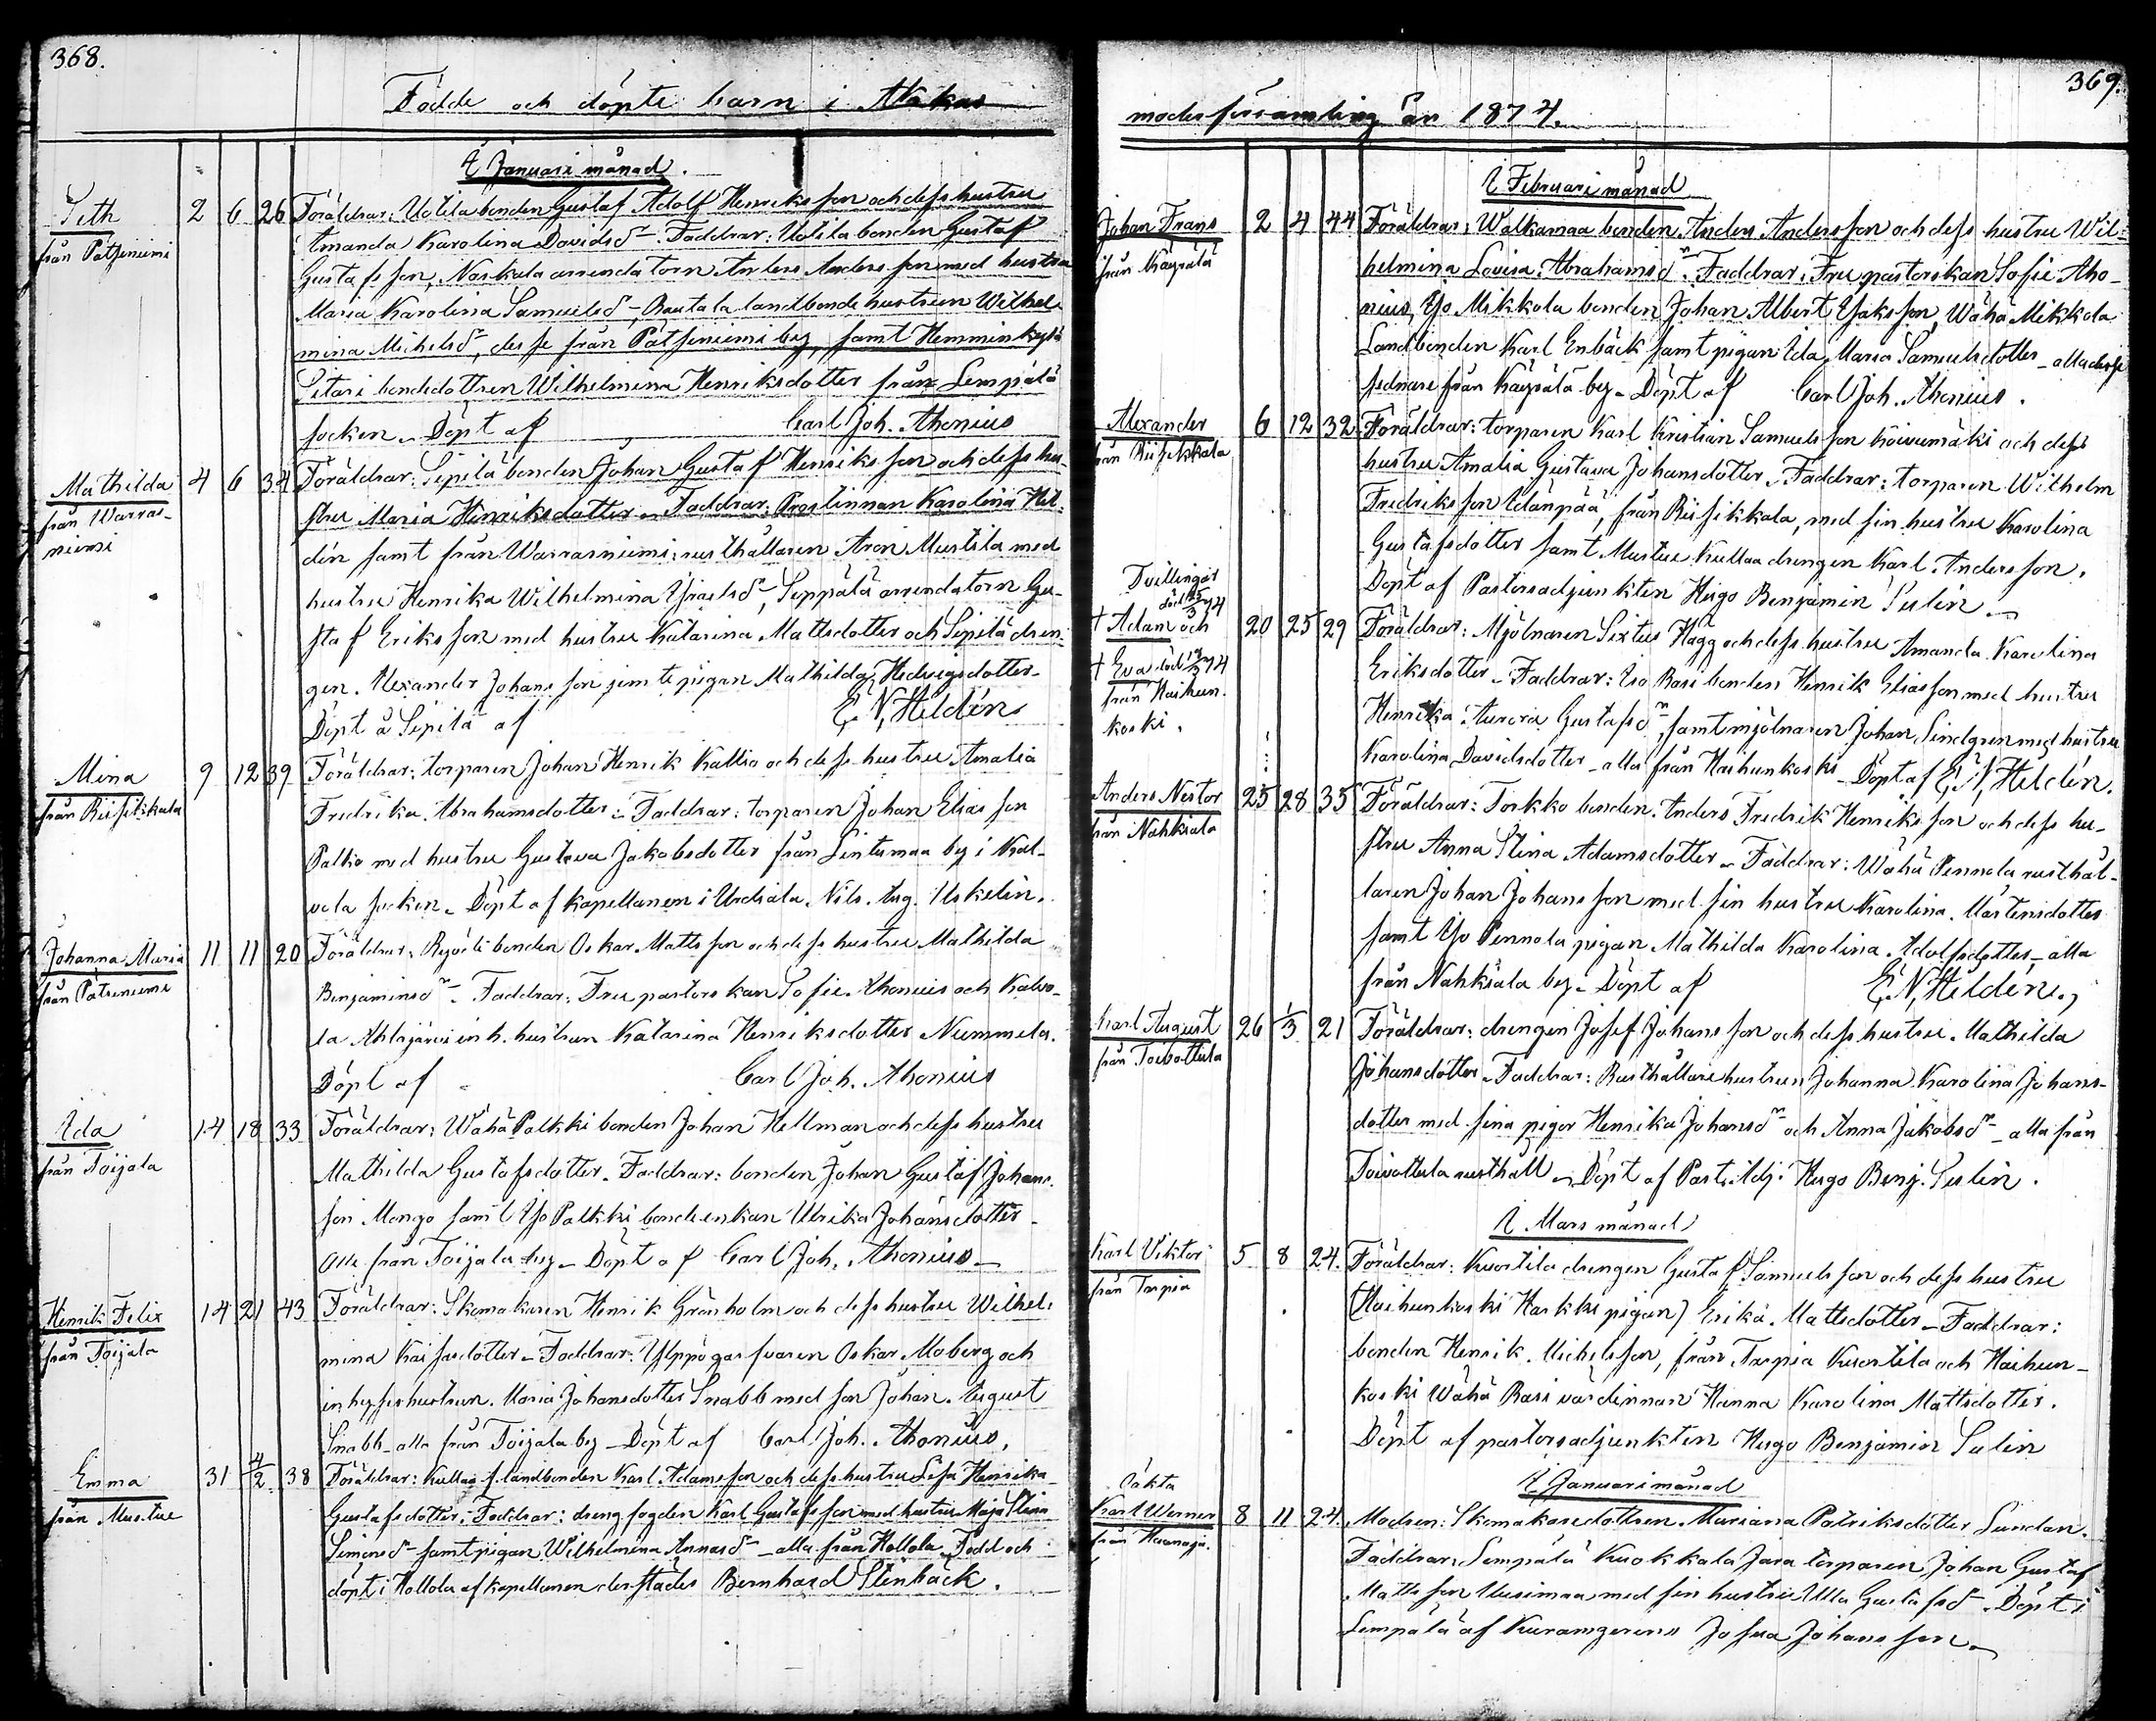 368.
Födde och döpte barn i Akkas
I Januari månad.
Seth 2 6 26 Föräldrar: Uotila bonden Gustaf Adolf Henriksson och dess hustru
från Pätsiniemi Amanda Karolina Davidsdr – Faddrar: Uotila bonden Gustaf
Gustafsson, Naskala arrendatorn Anders Andersson med hustru
Maria Karolina Samuelsdr – Rautala landbonde hustrun Wilhel-
mina Michelsdr, desse från Pätsiniemi by, samt Hemminkylä
Sitari bondedottren Wilhelmina Henriksdotter från Lempälä
socken – Döpt af Carl Joh. Ahonius
Mathilda 4 6 34 Föräldrar: Sipilä bonden Johan Gustaf Henriksson och dess hu-
från Warras- stru Maria Henriksdotter – Faddrar: Prostinnan Karolina Hel-
niemi dén samt från Warrasniemi: rusthållaren Aron Mustila med
hustru Henrika Wilhelmina Israelsdr, Seppälä arrendatorn Gu-
staf Eriksson med hustru Katarina Mattsdotter och Sipilä dren-
gen Alexander Johansson jemte pigan Mathilda Hedvigsdotter –
Döpt å Sipilä af E. N. Heldén
Mina 9 12 39 Föräldrar: torparen Johan Henrik Kallio och dess hustru Amalia
från Riisikkala Fredrika Abrahamsdotter – Faddrar: torparen Johan Eliasson
Palko med hustru Gustava Jakobsdotter från Lintumaa by i Kal-
vola socken – Döpt af kapellanen i Urdiala Nils Aug. Uskelin.
Johanna Maria 11 11 20 Föräldrar: bonden Oskar Mattsson och dess hustru Mathilda
från Pätsiniemi Benjaminsdr – Faddrar: Fru pastorskan Sofie Ahonius och Kalvo-
la Ahlajärvi inh. hustrun Katarina Henriksdotter Nummela.
Döpt af Carl Joh. Ahonius
Ida 14 18 33 Föräldrar: Wähä Palkki bonden Johan Hellman och dess hustru
från Toijala Mathilda Gustafsdotter – Faddrar: bonden Johan Gustaf Johans-
son Mongo samt Iso Palkki bondeenkan Ulrika Johansdotter –
alla från Toijala by – Döpt af Carl Joh. Ahonius –
Henrik Felix 14 21 43 Föräldrar: Skomakaren Henrik Gränholm och dess hustru Wilhel-
från Toijala mina Kaisasdotter – Faddrar: Ylppögasvaren Oskar Moberg och
inhysishustrun Maria Johansdotter Snabb med son Johan August
Snabb – alla från Toijala by – Döpt af Carl Joh. Ahonius.
Emma 31 4/2 38 Föräldrar: Kullaa f. landbonden Karl Adamsson och dess hustru Lisa Henrika
från Mustue Gustafsdotter. Faddrar: drengfogden Karl Gustafsson med hustru Maja Stina
Simonsdr samt pigan Wilhelmina Annasdr – alla från Hollola. Född och
döpt i Hollola af kapellanen derstädes Bernhard Stenbäck.
369.
moderförsamling år 1874.
I Februari månad
Johan Frans 2 4 44 Föräldrar: Walkamaa bonden Anders Andersson och dess hustru Wil-
från Käysälä helmina Lovisa Abrahamsdr – Faddrar: Fru pastorskan Sofie Aho-
nius, Iso Mikkola bonden Johan Albert Isaksson, Wähä Mikkola
Landbonden Karl Enbäck samt pigan Ida Maria Samuelsdotter – alla desse
sednare från Käysälä by – Döpt af Carl Joh. Ahonius.
Alexander 6 12 32 Föräldrar: torparen Karl Kristian Samuelsson Koivumäki och dess
från Riisikkala hustru Amalia Gustava Johansdotter – Faddrar: torparen Wilhelm
Fredriksson Idänpää, från Riisikkala, med sin hustru Karolina
Gustafsdotter samt Mustue Kullaa drengen Karl Andersson.
Döpt af Pastorsadjunkten Hugo Benjamin Sulin –
Tvillingar
† Adam och 20 25 29 Föräldrar: Mjölnaren Sixtus Hägg och dess hustru Amanda Karolina
† Eva Eriksdotter – Faddrar: Iso Rasi bonden Henrik Eliasson med hustru
från Haihun- Henrika Aurora Gustafsdr, samt mjölnaren Johan Lindgren med hustru
koski. Karolina Davidsdotter – alla från Haihunkoski – Döpt af E. N. Heldén.
Anders Nestor 25 28 35 Föräldrar: Torkko bonden Anders Fredrik Henriksson och dess hu-
från Nahkiala stru Anna Stina Adamsdotter – Faddrar: Wähä Pennola rusthål-
laren Johan Johansson med sin hustru Karolina Mårtensdotter
samt Iso Pennola pigan Mathilda Karolina Adolfsdotter – alla
från Nahkiala by – Döpt af E. N. Heldén.,
Karl August 26 1/3 21 Föräldrar: drengen Josef Johansson och dess hustru Mathilda
från Toivottula Johansdotter – Faddrar: Rusthållare hustrun Johanna Karolina Johans-
dotter med sina pigor Henrika Johansdr och Anna Jakobsdr – alla från
Toivottula rusthåll – Döpt af Past. Adj: Hugo Benj. Sulin.
I Mars månad
Karl Viktor 5 8 24. Föräldrar: Kurtila drengen Gustaf Samuelsson och dess hustru
från Tarpia (Haihunkoski Harkki pigan) Erika Mattsdotter – Faddrar:
bonden Henrik Michelsson, från Tarpia Kurtila och Haihun-
koski Wähä Rasi värdinnan Hanna Karolina Mattsdotter.
Döpt af pastorsadjunkten Hugo Benjamin Sulin
I Januari månad
Oäkta
Karl Werner 8 11 24. Modren: Skomakaredottren Mariana Patriksdotter Lundan.
från Faddrar: Lempälä Kuokkala Jara torparen Johan Gustaf
Mattsson Uusimaa med sin hustru Ulla Gustafsdr – Döpt i
Lempälä af Josua Johansson –